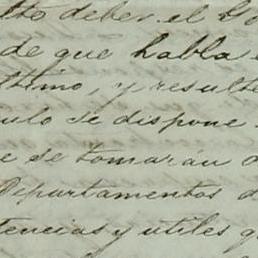 deber el
de que habla
timo, y resulte
ulo se dispone
e se tomarán
Departamentos d
tencias y utiles q